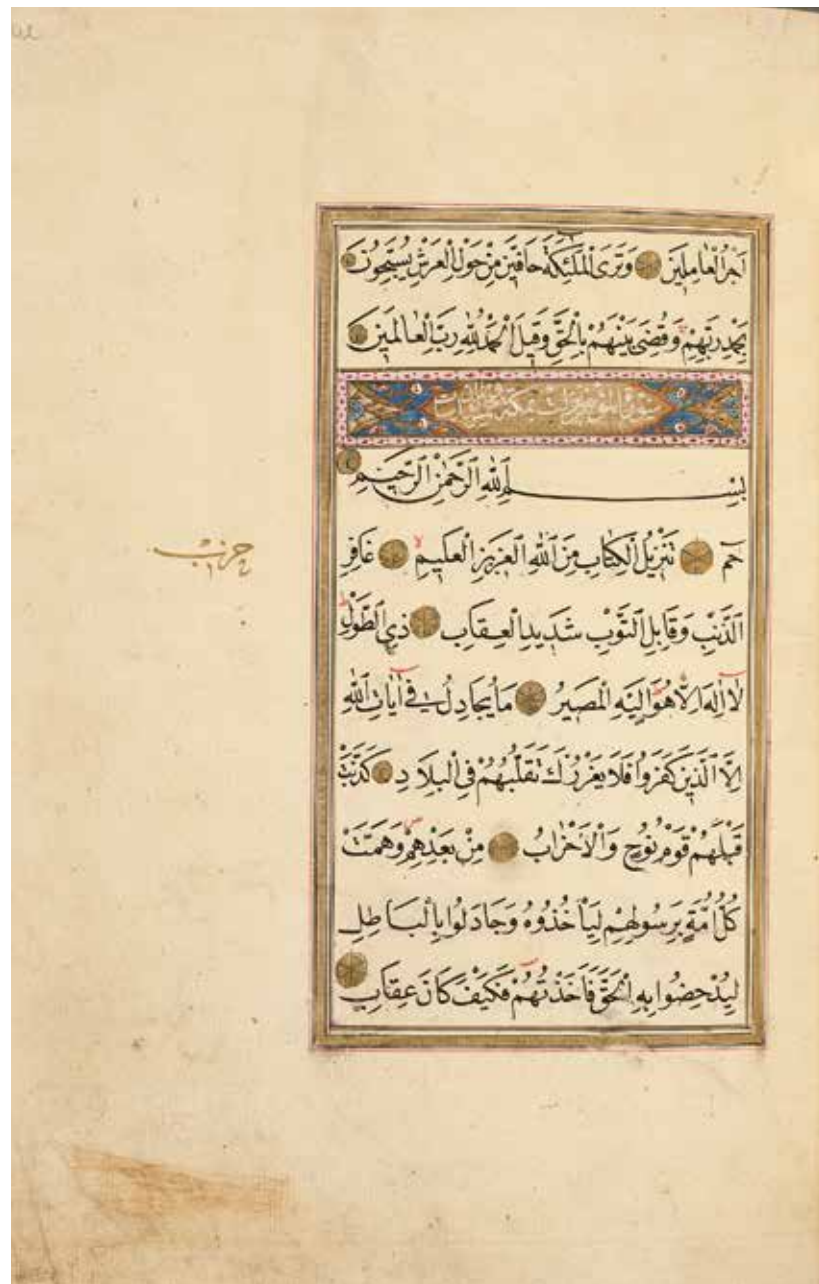 اَجْرُ الْعَامِلِينَ وَتَرَى الْمَلٰئِكَةَ حَافِّينَ مِنْ حَوْلِ الْعَرْشِ يُسَبِّحُونَ
بِحَمْدِ رَبِّهِمْ وَقُضِىَ بَيْنَهُمْ بِالْحَقِّ وَقِيلَ الْحَمْدُ لِلّٰهِ رَبِّ الْعَالَمِينَ
سورة المؤمن
بِسْمِ اللّٰهِ الرَّحْمٰنِ الرَّحِيمِ
حٰمٓ تَنْزِيلُ الْكِتَابِ مِنَ اللّٰهِ الْعَزِيزِ الْعَلِيمِ غَافِرِ
حزب
الذَّنْبِ وَقَابِلِ التَّوْبِ شَدِيدِ الْعِقَابِ ذِي الطَّوْلِ
لَا اِلٰهَ اِلَّا هُوَ اِلَيْهِ الْمَصِيرُ مَا يُجَادِلُ فِى اٰيَاتِ اللّٰهِ
اِلَّا الَّذِينَ كَفَرُوا فَلَا يَغْرُرْكَ تَقَلُّبُهُمْ فِى الْبِلَادِ كَذَّبَتْ
قَبْلَهُمْ قَوْمُ نُوحٍ وَالْاَحْزَابُ مِنْ بَعْدِهِمْ وَهَمَّتْ
كُلُّ اُمَّةٍ بِرَسُولِهِمْ لِيَأْخُذُوهُ وَجَادَلُوا بِالْبَاطِلِ
لِيُدْحِضُوا بِهِ الْحَقَّ فَاَخَذْتُهُمْ فَكَيْفَ كَانَ عِقَابِ